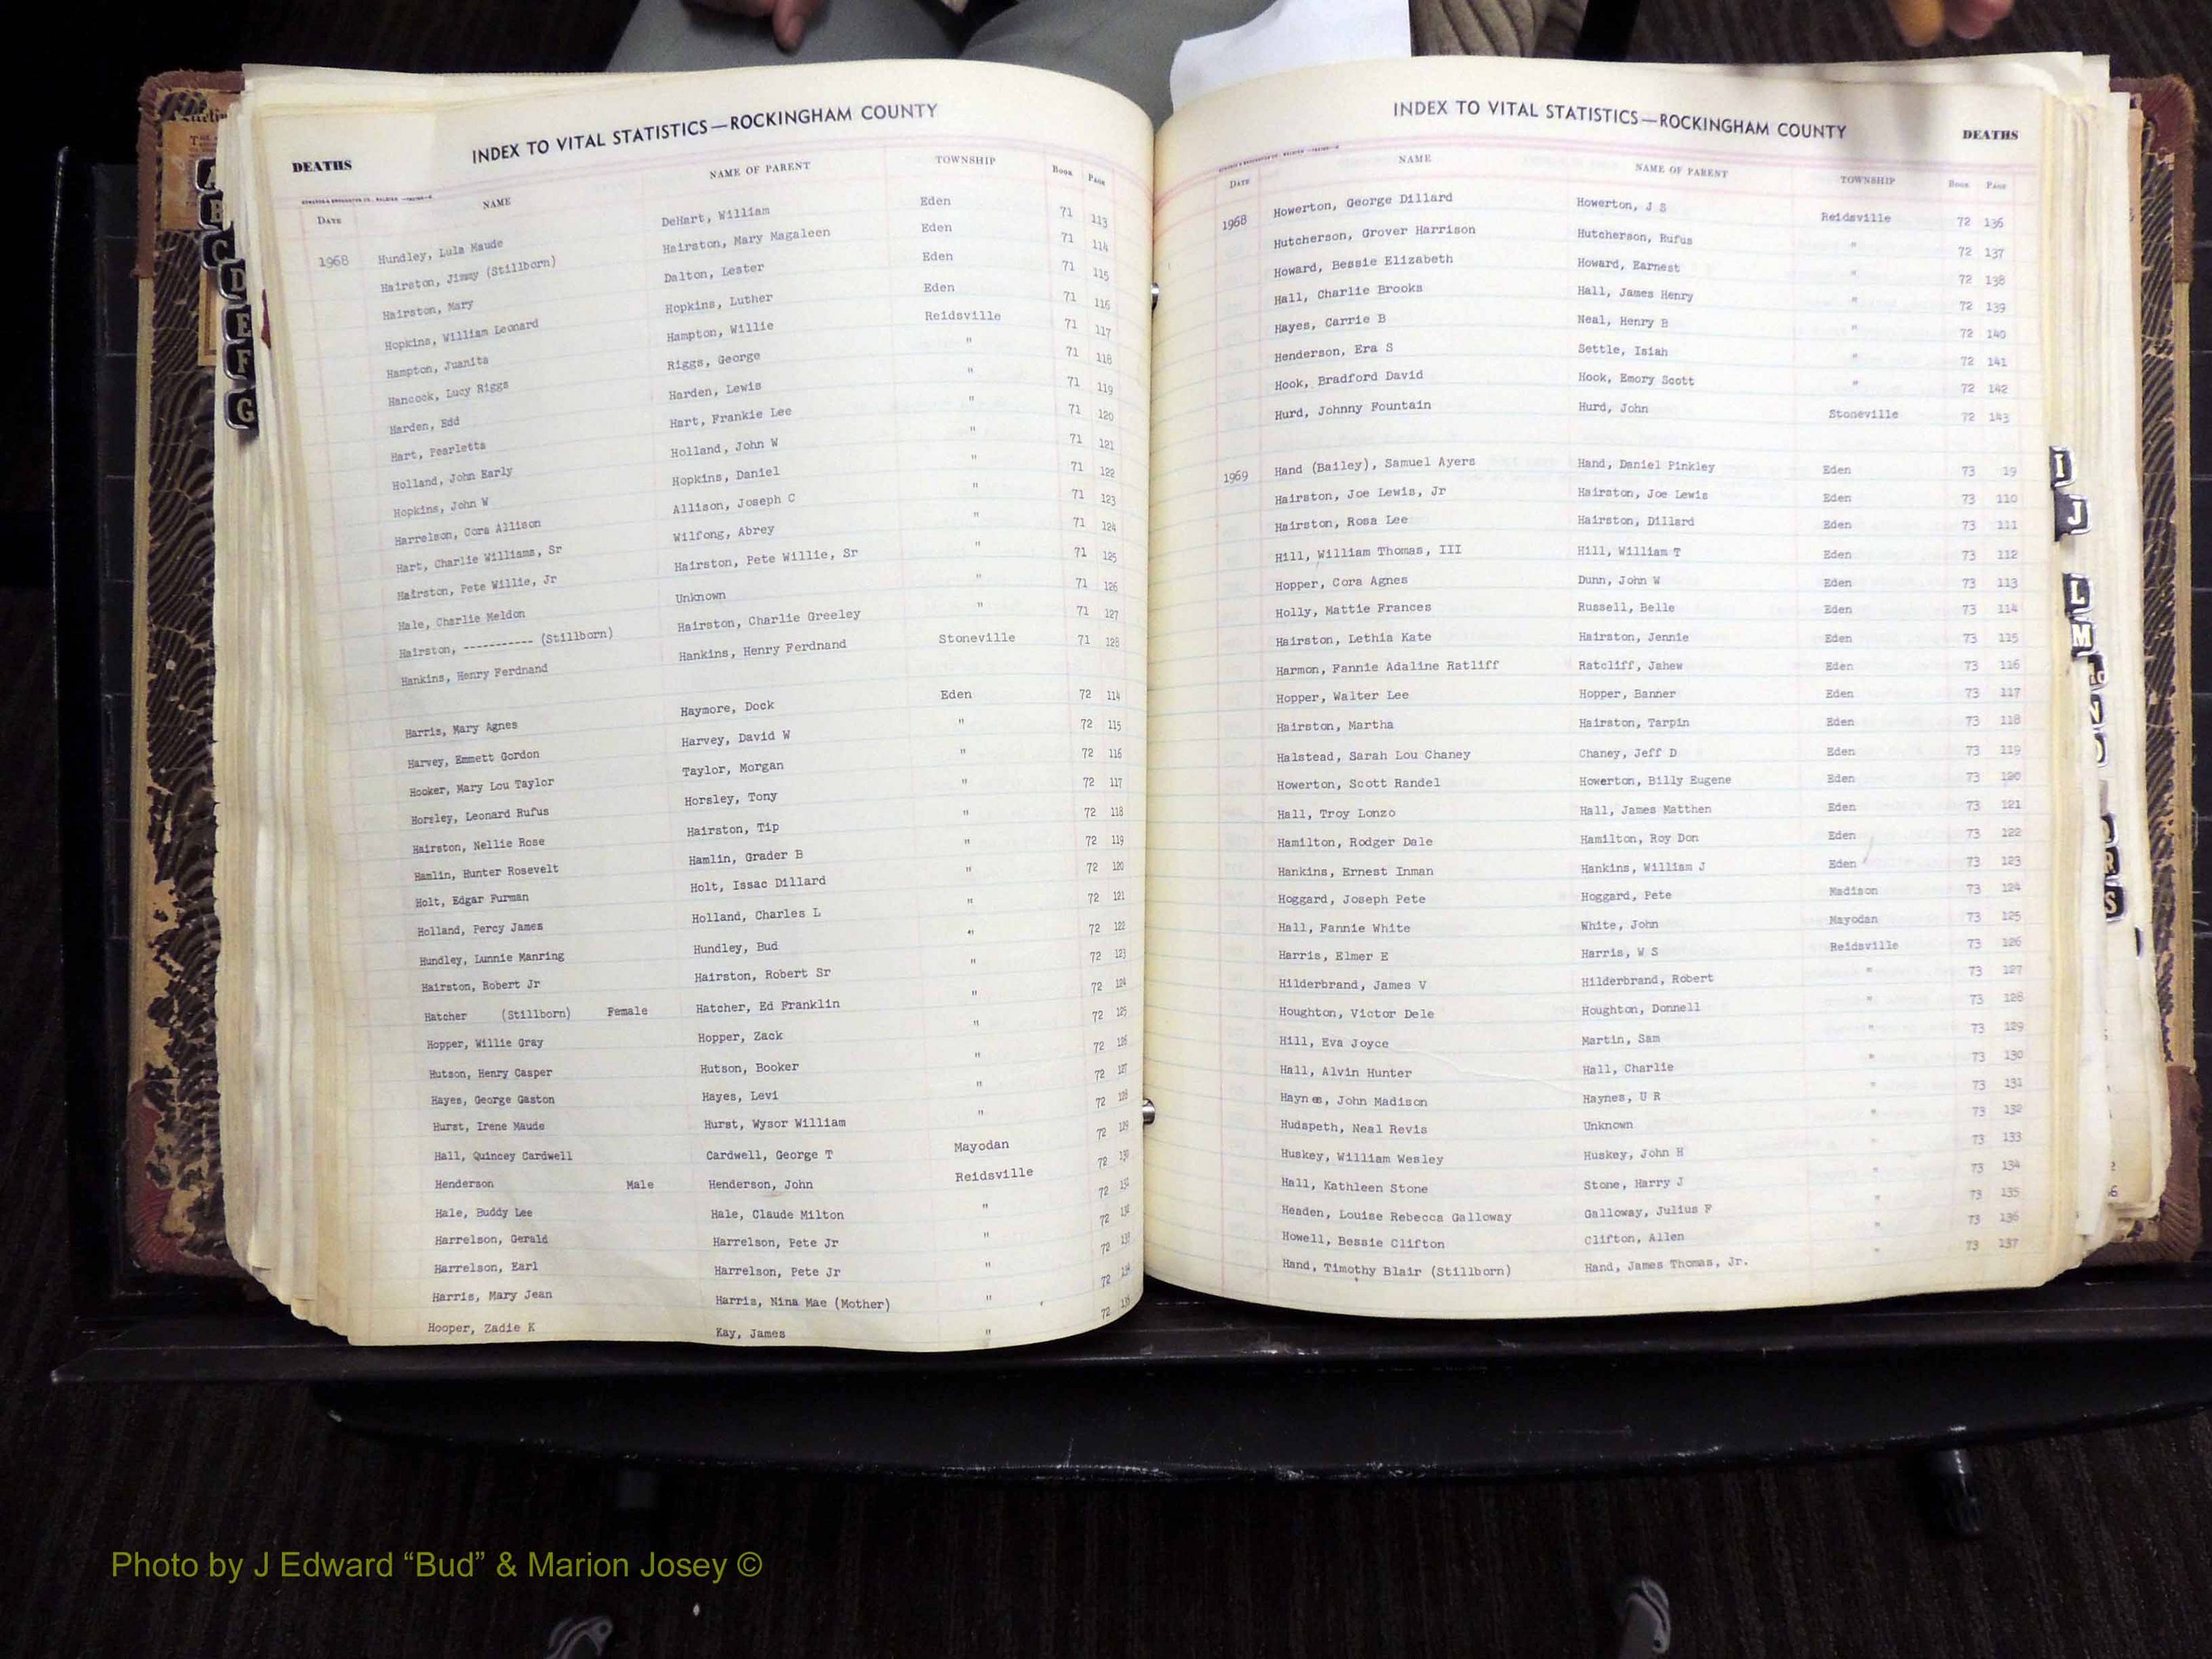 INDEX TO VITAL STATISTICS—ROCKINGHAM COUNTY
DEATHS
DATE NAME NAME OF PARENT TOWNSHIP BOOK PAGE
1968 Hundley, Lula Maude DeHart, William Eden 71 113
Hairston, Jimmy (Stillborn) Hairston, Mary Magaleen Eden 71 114
Hairston, Mary Dalton, Lester Eden 71 115
Hopkins, William Leonard Hopkins, Luther Eden 71 116
Hampton, Juanita Hampton, Willie Reidsville 71 117
Hancock, Lucy Riggs Riggs, George " 71 118
Harden, Edd Harden, Lewis " 71 119
Hart, Pearletta Hart, Frankie Lee " 71 120
Holland, John Early Holland, John W " 71 121
Hopkins, John W Hopkins, Daniel " 71 122
Harrelson, Cora Allison Allison, Joseph C " 71 123
Hart, Charlie Williams, Sr Wilfong, Abrey " 71 124
Hairston, Pete Willie, Jr Hairston, Pete Willie, Sr " 71 125
Hale, Charlie Meldon Unknown " 71 126
Hairston, ----------- (Stillborn) Hairston, Charlie Greeley " 71 127
Hankins, Henry Ferdnand Hankins, Henry Ferdnand Stoneville 71 128
Harris, Mary Agnes Haymore, Dock Eden 72 114
Harvey, Emmett Gordon Harvey, David W " 72 115
Hooker, Mary Lou Taylor Taylor, Morgan " 72 116
Horsley, Leonard Rufus Horsley, Tony " 72 117
Hairston, Nellie Rose Hairston, Tip " 72 118
Hamlin, Hunter Rosevelt Hamlin, Grader B " 72 119
Holt, Edgar Furman Holt, Issac Dillard " 72 120
Holland, Percy James Holland, Charles L " 72 121
Hundley, Lunnie Manring Hundley, Bud " 72 122
Hairston, Robert Jr Hairston, Robert Sr " 72 123
Hatcher (Stillborn) Female Hatcher, Ed Franklin " 72 124
Hopper, Willie Gray Hopper, Zack " 72 125
Hutson, Henry Casper Hutson, Booker " 72 126
Hayes, George Gaston Hayes, Levi " 72 127
Hurst, Irene Maude Hurst, Wysor William " 72 128
Hall, Quincey Cardwell Cardwell, George T Mayodan 72 129
Henderson Male Henderson, John Reidsville 72 130
Hale, Buddy Lee Hale, Claude Milton " 72
Harrelson, Gerald Harrelson, Pete Jr " 72
Harrelson, Earl Harrelson, Pete Jr " 72 133
Harris, Mary Jean Harris, Nina Mae (Mother) " 72 134
Hooper, Zadie K Kay, James " 72 135
INDEX TO VITAL STATISTICS—ROCKINGHAM COUNTY
DEATHS
DATE NAME NAME OF PARENT TOWNSHIP BOOK PAGE
1968 Howerton, George Dillard Howerton, J S Reidsville 72 136
Hutcherson, Grover Harrison Hutcherson, Rufus " 72 137
Howard, Bessie Elizabeth Howard, Earnest " 72 138
Hall, Charlie Brooks Hall, James Henry " 72 139
Hayes, Carrie B Neal, Henry B " 72 140
Henderson, Era S Settle, Isiah " 72 141
Hook, Bradford David Hook, Emory Scott " 72 142
Hurd, Johnny Fountain Hurd, John Stoneville 72 143
1969 Hand (Bailey), Samuel Ayers Hand, Daniel Pinkley Eden 73 19
Hairston, Joe Lewis, Jr Hairston, Joe Lewis Eden 73 110
Hairston, Rosa Lee Hairston, Dillard Eden 73 111
Hill, William Thomas, III Hill, William T Eden 73 112
Hopper, Cora Agnes Dunn, John W Eden 73 113
Holly, Mattie Frances Russell, Belle Eden 73 114
Hairston, Lethia Kate Hairston, Jennie Eden 73 115
Harmon, Fannie Adaline Ratliff Ratcliff, Jahew Eden 73 116
Hopper, Walter Lee Hopper, Banner Eden 73 117
Hairston, Martha Hairston, Tarpin Eden 73 118
Halstead, Sarah Lou Chaney Chaney, Jeff D Eden 73 119
Howerton, Scott Randel Howerton, Billy Eugene Eden 73 120
Hall, Troy Lonzo Hall, James Matthen Eden 73 121
Hamilton, Rodger Dale Hamilton, Roy Don Eden 73 122
Hankins, Ernest Inman Hankins, William J Eden 73 123
Hoggard, Joseph Pete Hoggard, Pete Madison 73 124
Hall, Fannie White White, John Mayodan 73 125
Harris, Elmer E Harris, W S Reidsville 73 126
Hilderbrand, James V Hilderbrand, Robert " 73 127
Houghton, Victor Dele Houghton, Donnell " 73 128
Hill, Eva Joyce Martin, Sam " 73 129
Hall, Alvin Hunter Hall, Charlie " 73 130
Haynes, John Madison Haynes, U R " 73 131
Hudspeth, Neal Revis Unknown " 73 132
Huskey, William Wesley Huskey, John H " 73 133
Hall, Kathleen Stone Stone, Harry J " 73 134
Headen, Louise Rebecca Galloway Galloway, Julius F " 73 135
Howell, Bessie Clifton Clifton, Allen " 73 136
Hand, Timothy Blair (Stillborn) Hand, James Thomas, Jr. " 73 137
B
C
D
E
F
G
I
J
L
M
N
R
S
Photo by J Edward “Bud” & Marion Josey ©